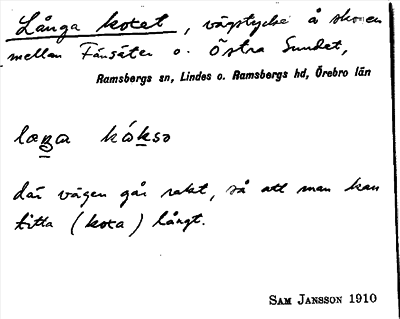 Långa kotet, vägstycke å skogen
mellan Fänsäter o. Östra Sundet,
Ramsbergs sn, Lindes o. Ramsbergs hd, Örebro län
där vägen går rakt, så att man kan
titta (kota) långt.
SAM JANSSON 1910